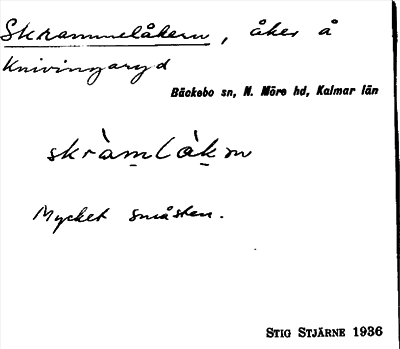 Skrammelåkern, åker å
Knivingaryd
Bäckebo sn, N. Möre hd, Kalmar län
skràmlåkn
Mycket småsten.
STIG STJÄRNE 1936